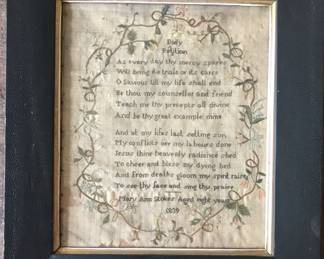 Daily
Petition
As every day thy mercy spares
Will bring its trials or its cares
O Saviour till my life shall end
Be thou my counsellor and friend
Teach me thy precepts all divine
And be thy great example mine
And at my lifes last setting sun
My conflicts oer my labours done
Jesus thine heavenly radience shed
To cheer and bless my dying bed
And from deaths gloom my spirit raise
To see thy face and sing thy praise
Mary Ann Stokes Aged eight years
1839